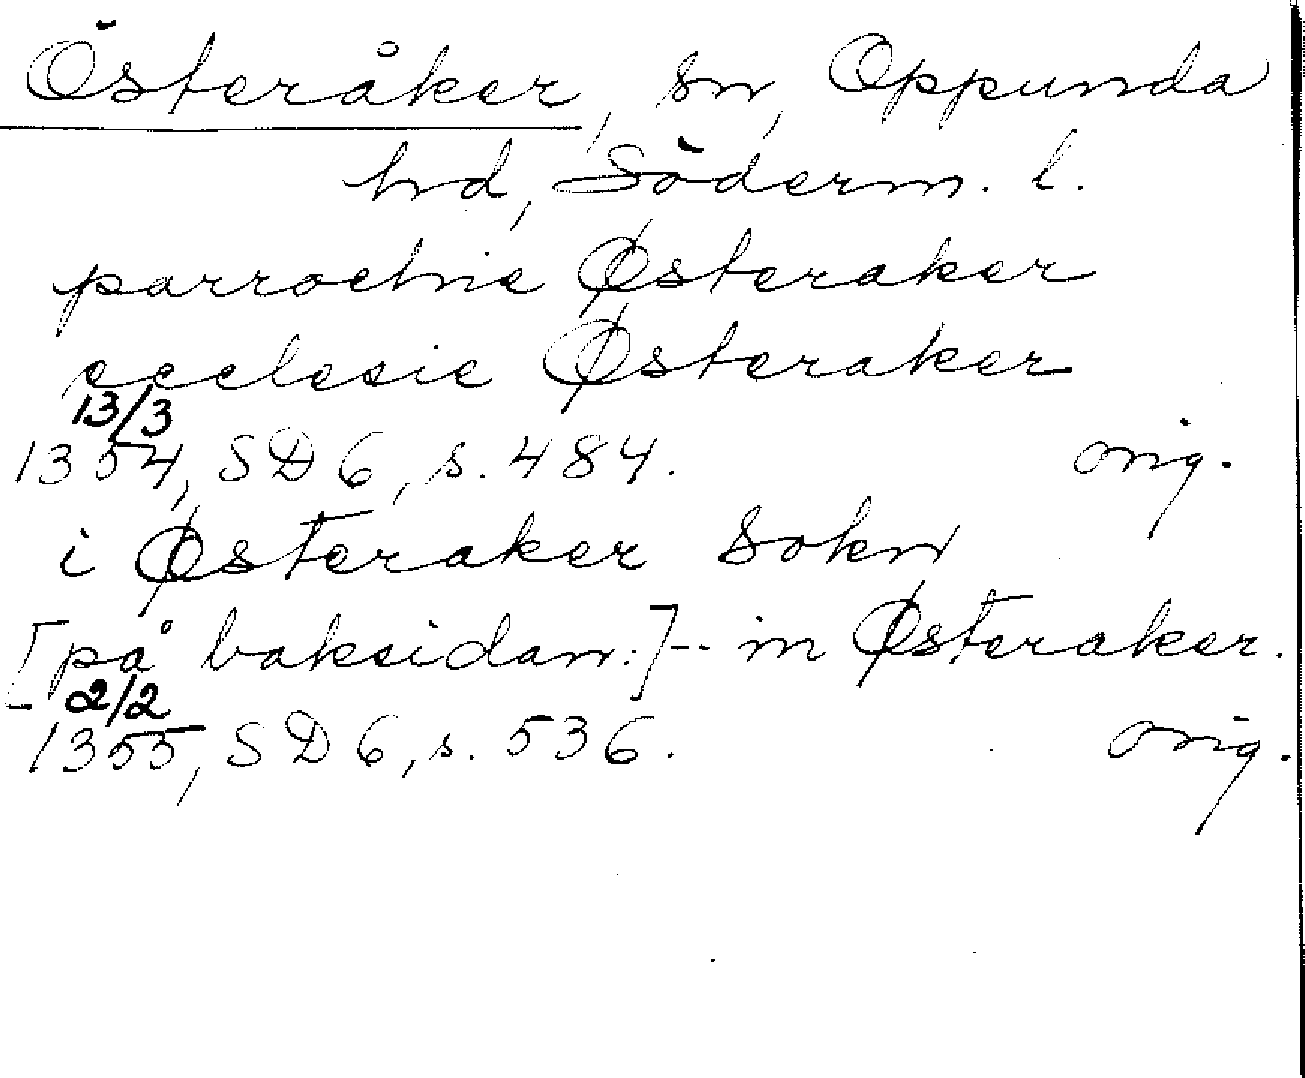 Österåker, sn, Oppunda
hd, Söderm. l.
parrochie Østeraker
ecclesie Østeraker
13/3
1354, SD 6, s. 484. orig.
i Østeraker Sokn
[på baksidan:] -- in Østeraker.
2/2
1355, SD 6, s. 536. orig.